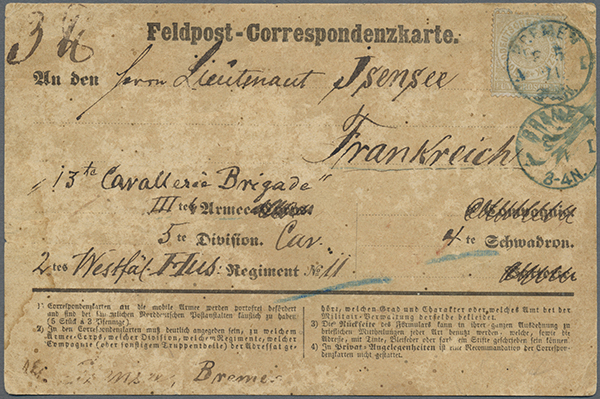 Feldpost-Correspondenzkarte.
An den Herrn Lieutenant Isensee
Frankreich
"13te Cavallerie Brigade"
III tes Armee-
5 te Division. Cav. 4 te Schwadron.
2 tes Westfäl. Hus. Regiment № 11
1) Correspondenzkarten an die mobile Armee werden portofrei befördert
und sind bei Norddeutschen Postanstalten käuflich zu haben
(5 Stück à 3 Pfennige).
2) In den Correspondenzkarten muß deutlich angegeben sein, zu welchem
Armee-Corps, welcher Division, welchem Regimente, welcher
Compagnie (oder sonstigem Truppentheile) der Adressat ge-
hört, welchen Grad und Charakter oder welches Amt bei der
Militair-Verwaltung derselbe bekleidet.
3) Die Rückseite des Formulars kann in ihrer ganzen Ausdehnung zu
brieflichen Mittheilungen jeder Art benutzt werden, welche, sowie die
Adresse, mit Tinte, Bleifeder oder farb. Stifte geschrieben sein können.
4) In Privat-Angelegenheiten ist eine Recommandation der Correspon-
denzkarten nicht gestattet.
Bremen
BREMEN I
5
71
BREMEN I
71
3-4N.